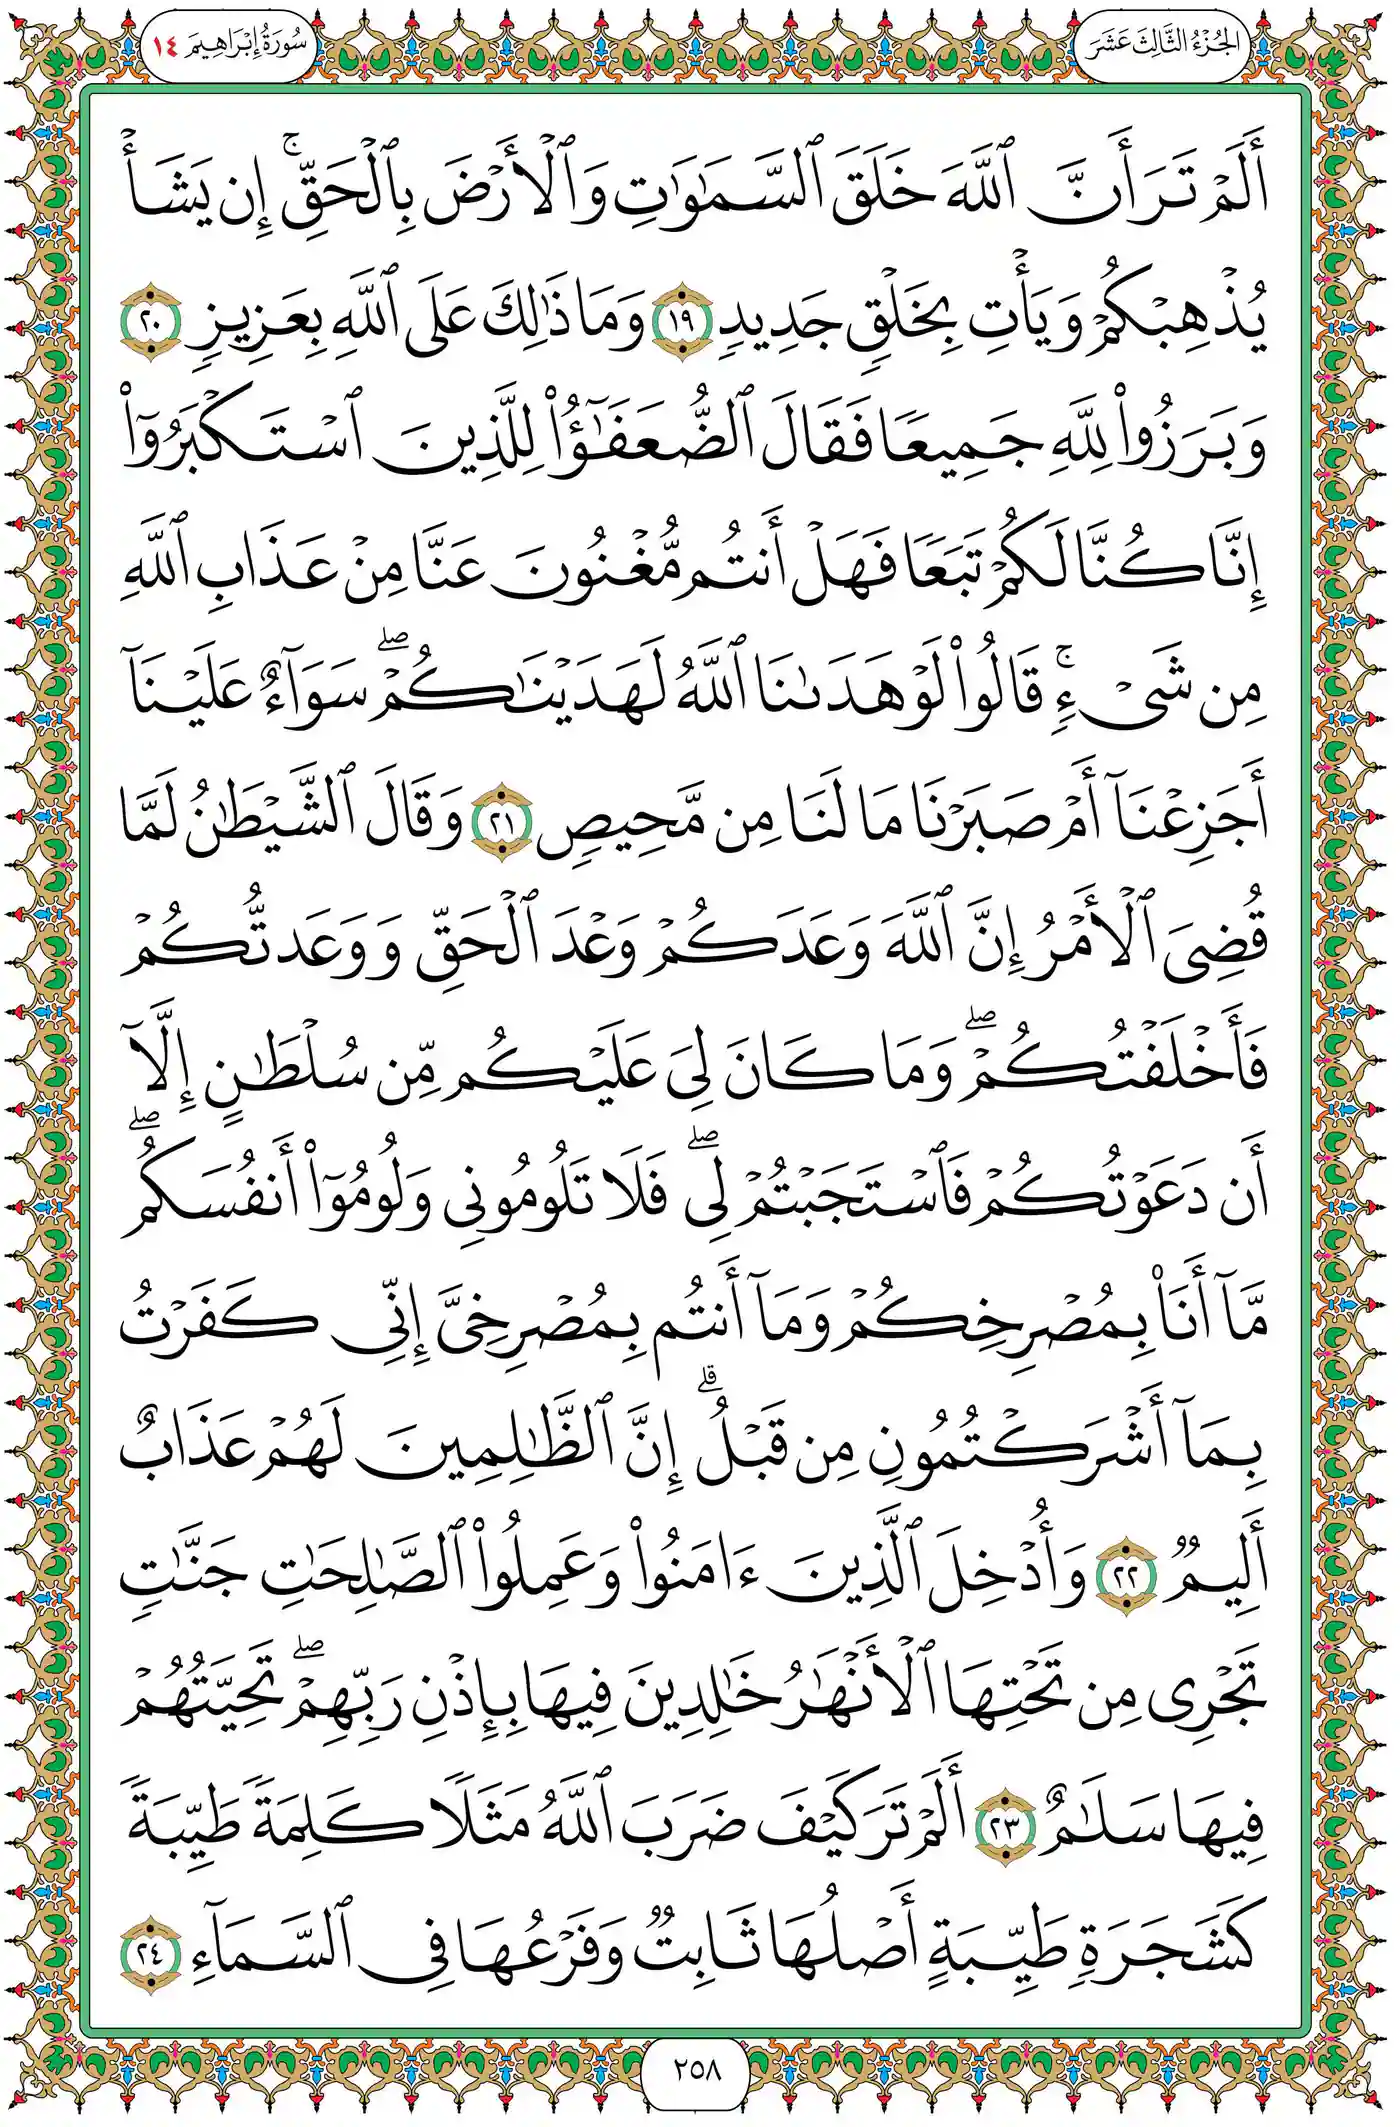 الجُزْءُ الثَّالِثَ عَشَرَ
سُورَةُ إِبْرَاهِيمَ ١٤
أَلَمْ تَرَ أَنَّ ٱللَّهَ خَلَقَ ٱلسَّمَٰوَٰتِ وَٱلْأَرْضَ بِٱلْحَقِّۚ إِن يَشَأْ
يُذْهِبْكُمْ وَيَأْتِ بِخَلْقٍۢ جَدِيدٍۢ ١٩ وَمَا ذَٰلِكَ عَلَى ٱللَّهِ بِعَزِيزٍۢ ٢٠
وَبَرَزُوا۟ لِلَّهِ جَمِيعًۭا فَقَالَ ٱلضُّعَفَٰٓؤُا۟ لِلَّذِينَ ٱسْتَكْبَرُوٓا۟
إِنَّا كُنَّا لَكُمْ تَبَعًۭا فَهَلْ أَنتُم مُّغْنُونَ عَنَّا مِنْ عَذَابِ ٱللَّهِ
مِن شَىْءٍۢۚ قَالُوا۟ لَوْ هَدَىٰنَا ٱللَّهُ لَهَدَيْنَٰكُمْۖ سَوَآءٌ عَلَيْنَآ
أَجَزِعْنَآ أَمْ صَبَرْنَا مَا لَنَا مِن مَّحِيصٍۢ ٢١ وَقَالَ ٱلشَّيْطَٰنُ لَمَّا
قُضِىَ ٱلْأَمْرُ إِنَّ ٱللَّهَ وَعَدَكُمْ وَعْدَ ٱلْحَقِّ وَوَعَدتُّكُمْ
فَأَخْلَفْتُكُمْۖ وَمَا كَانَ لِىَ عَلَيْكُم مِّن سُلْطَٰنٍ إِلَّآ
أَن دَعَوْتُكُمْ فَٱسْتَجَبْتُمْ لِىۖ فَلَا تَلُومُونِى وَلُومُوٓا۟ أَنفُسَكُمۖ
مَّآ أَنَا۠ بِمُصْرِخِكُمْ وَمَآ أَنتُم بِمُصْرِخِىَّ إِنِّى كَفَرْتُ
بِمَآ أَشْرَكْتُمُونِ مِن قَبْلُۗ إِنَّ ٱلظَّٰلِمِينَ لَهُمْ عَذَابٌ
أَلِيمٌۭ ٢٢ وَأُدْخِلَ ٱلَّذِينَ ءَامَنُوا۟ وَعَمِلُوا۟ ٱلصَّٰلِحَٰتِ جَنَّٰتٍۢ
تَجْرِى مِن تَحْتِهَا ٱلْأَنْهَٰرُ خَٰلِدِينَ فِيهَا بِإِذْنِ رَبِّهِمْۖ تَحِيَّتُهُمْ
فِيهَا سَلَٰمٌ ٢٣ أَلَمْ تَرَ كَيْفَ ضَرَبَ ٱللَّهُ مَثَلًۭا كَلِمَةًۭ طَيِّبَةًۭ
كَشَجَرَةٍۢ طَيِّبَةٍ أَصْلُهَا ثَابِتٌۭ وَفَرْعُهَا فِى ٱلسَّمَآءِ ٢٤
٢٥٨